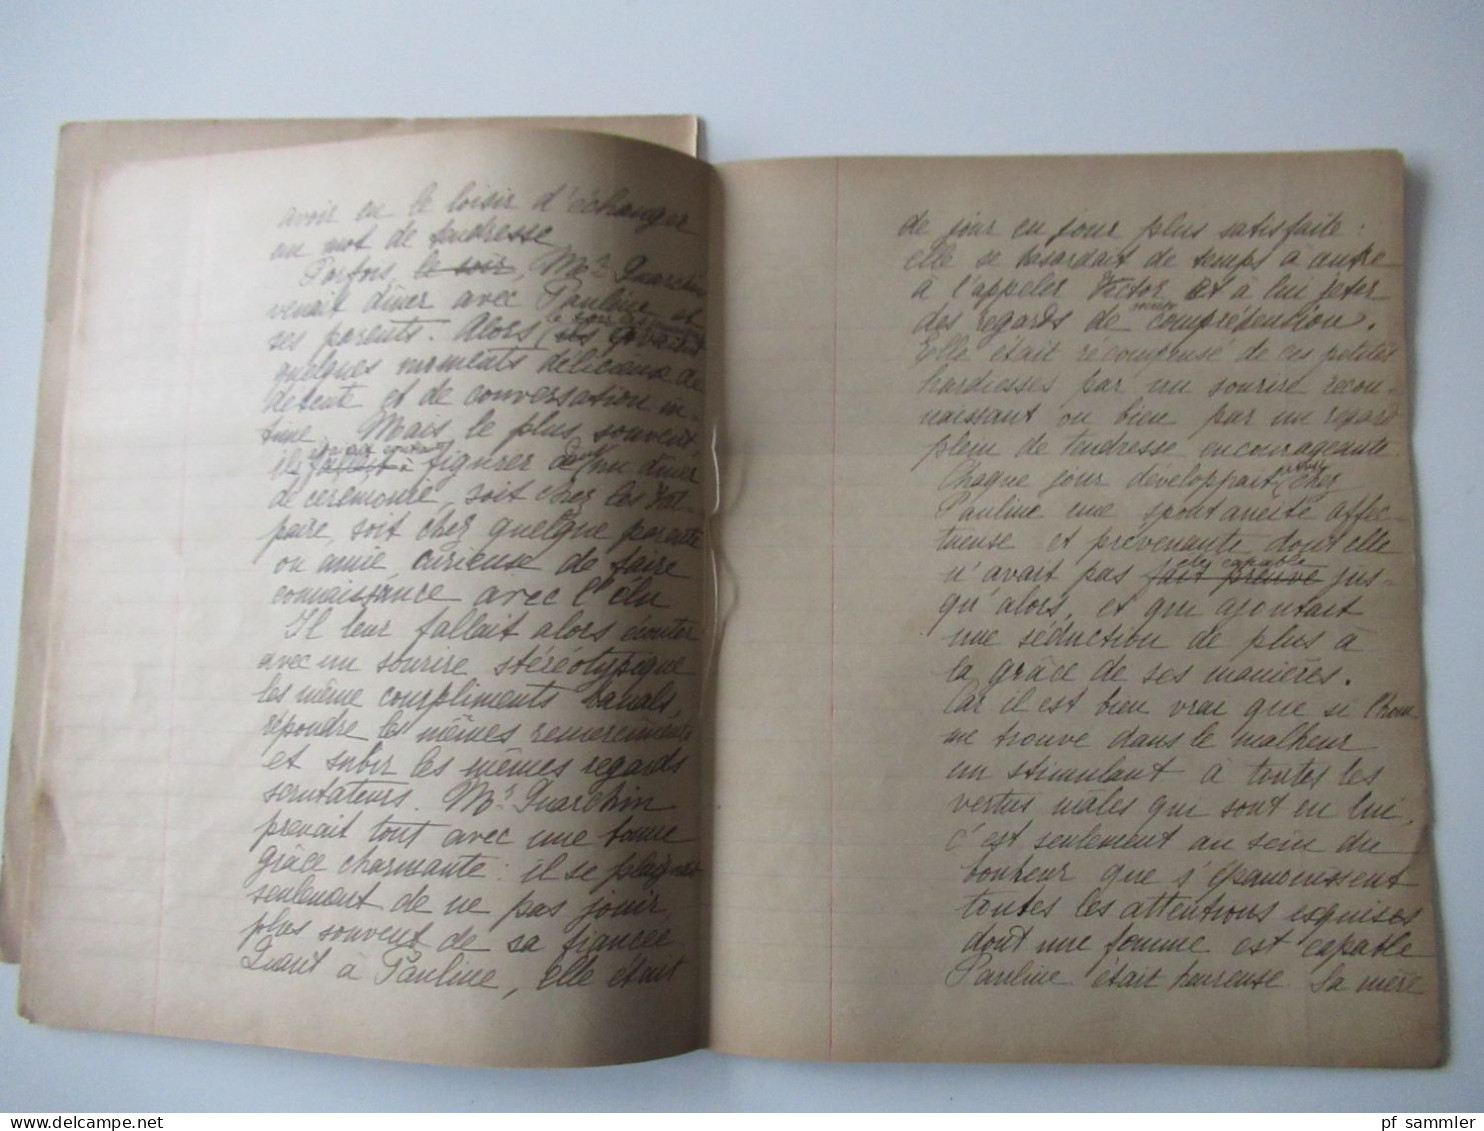 avoir eu le loisir d'échanger
un mot de tendresse
Parfois, le soir, Mr Guarchin
venait dîner avec Pauline et
ses parents. Alors
quelques moments délicieux de
détente et de conversation in-
time. Mais le plus souvent
ils fallait à figurer dans un dîner
de cérémonie, soit chez les Val-
paire, soit chez quelque parente
ou amie curieuse de faire
connaissance avec l'élu
Il leur fallait alors écouter
avec un sourire stéréotypique
les même compliments banals,
répondre les mêmes remerciements
et subir les mêmes regards
scrutateurs. Mr Guarchin
prenait tout avec une bonne
grâce charmante : il se plaignait
seulement de ne pas jouir
plus souvent de sa fiancée
Quant à Pauline, elle était
de jour en jour plus satisfaite :
elle se hasardait de temps à autre
à l'appeler Victor et à lui jeter
des regards de compréhension.
Elle était récompensé de ces petites
hardiesses par un sourire recon-
naissant ou bien par un regard
plein de tendresse encourageante
Chaque jour développait chez
Pauline une spontanéité affec-
tueuse et prévenante dont elle
n'avait pas fait preuve été capable jus-
qu'alors, et qui ajoutait
une séduction de plus à
la grâce de ses manières.
Car il est bien vrai que si l'hom-
me trouve dans le malheur
un stimulant à toutes les
vertus mâles qui sont en lui,
c'est seulement au sein du
bonheur que s'épanouissent
toutes les attentions exquises
dont une femme est capable
Pauline était heureuse. Sa mère
pf_sammler